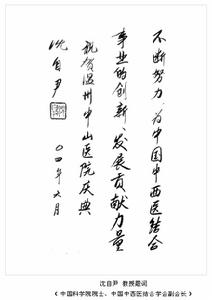 不断努力，为中国中西医结合
事业的创新、发展贡献力量
祝贺温州中山医院庆典
沈自尹
〇四年六月
沈自尹 教授题词
（中国科学院院士、中国中西医结合学会副会长）